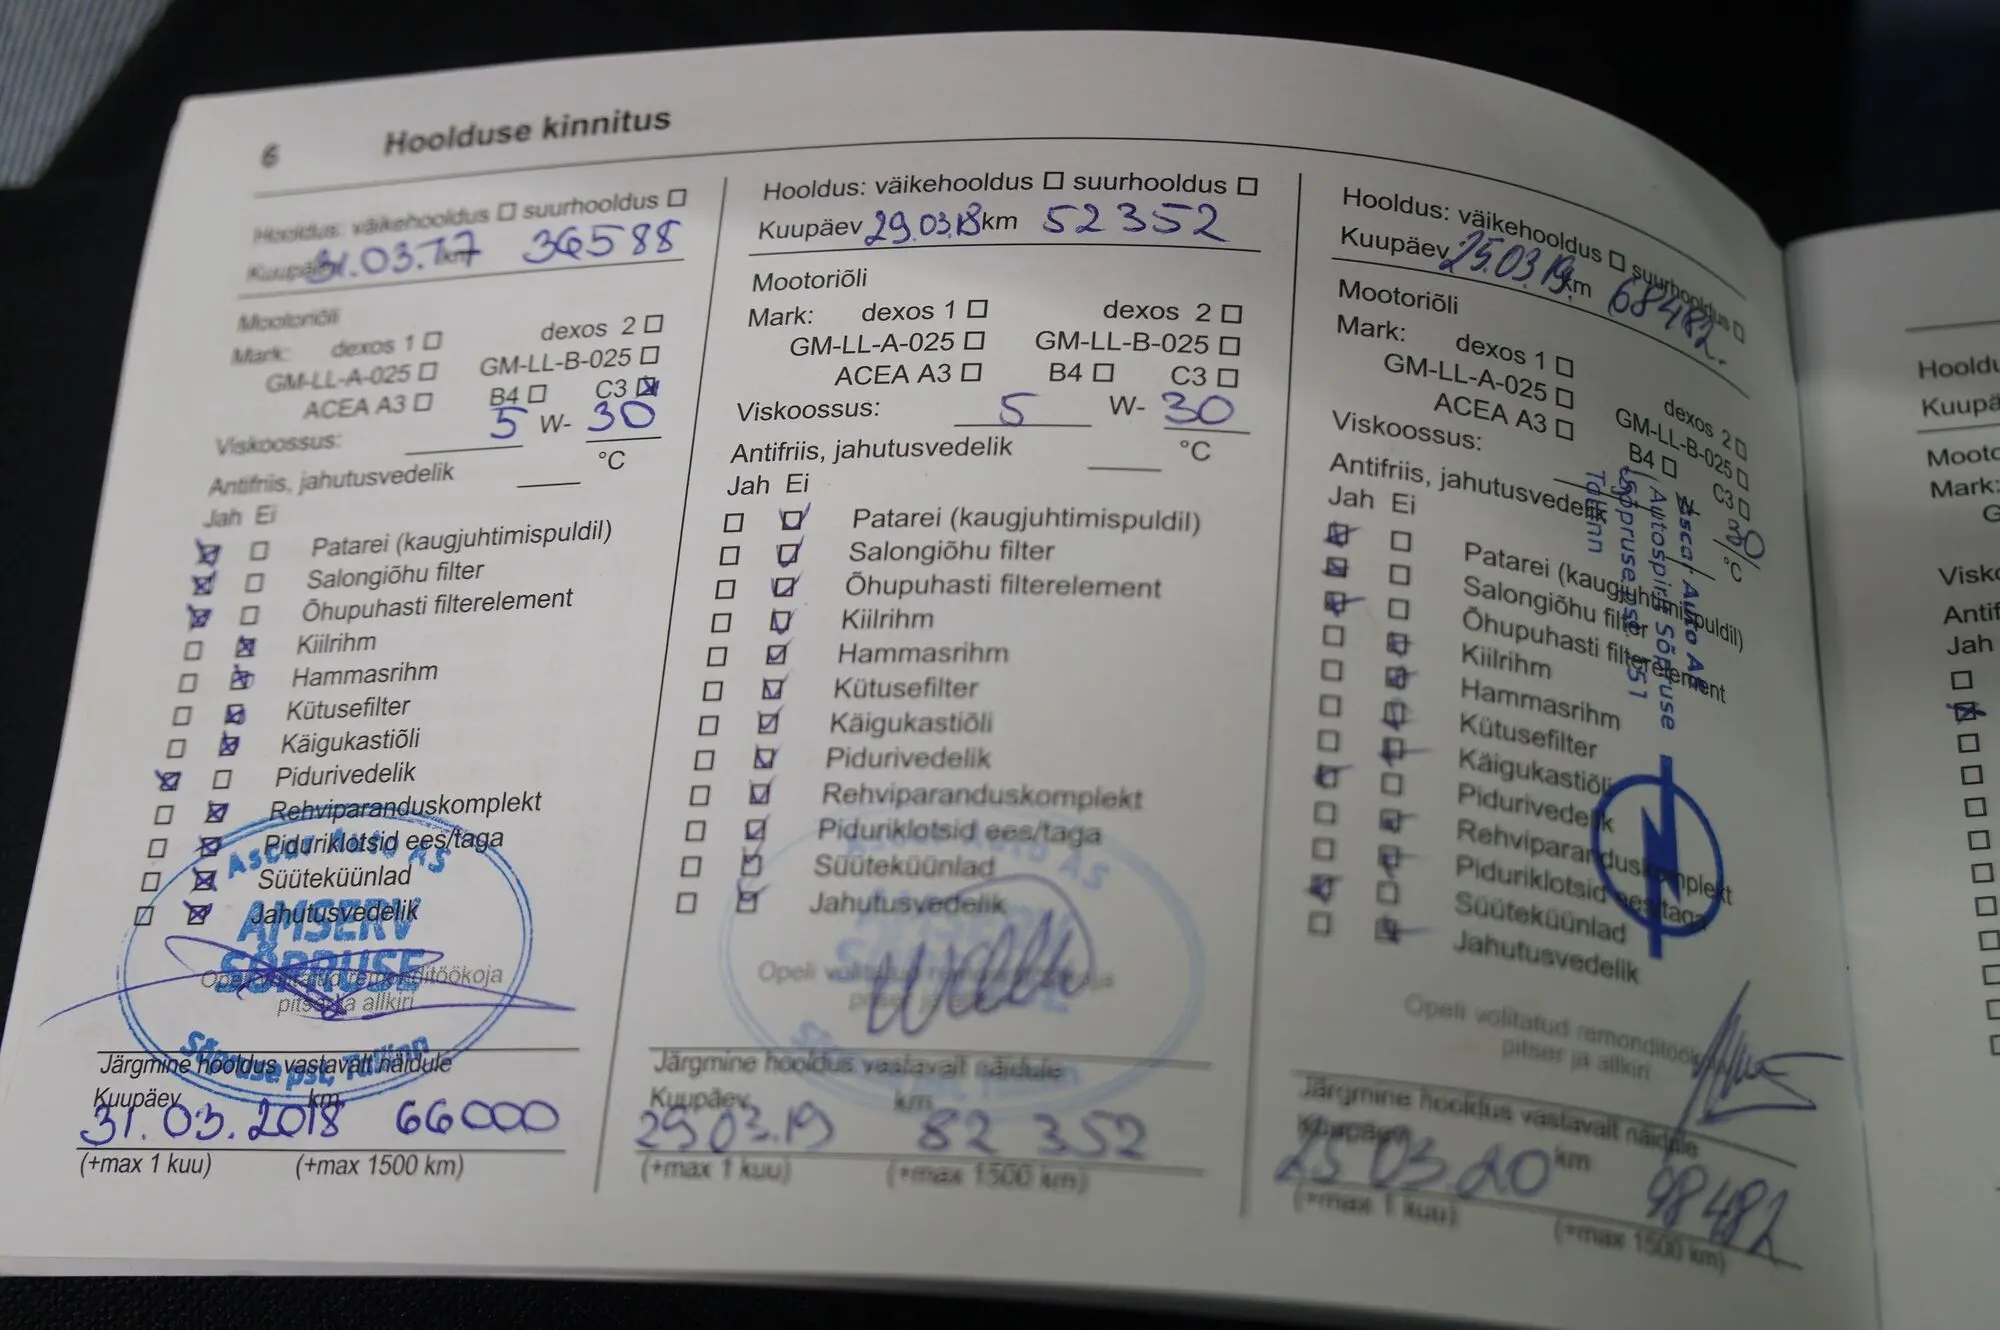 6 Hoolduse kinnitus
Hooldus: väikehooldus suurhooldus
Kuupäev 31.03.17 km 36588
Mootoriõli
Mark: dexos 1 dexos 2
GM-LL-A-025 GM-LL-B-025
ACEA A3 B4 C3
Viskoossus: 5 W- 30
Antifriis, jahutusvedelik °C
Jah Ei
Patarei (kaugjuhtimispuldil)
Salongiõhu filter
Õhupuhasti filterelement
Kiilrihm
Hammasrihm
Kütusefilter
Käigukastiõli
Pidurivedelik
Rehviparanduskomplekt
Piduriklotsid ees/taga
Süüteküünlad
Jahutusvedelik
Ascar Auto AS
AMSERV
SÕPRUSE
Sõpruse pst, Tallinn
Opeli volitatud remonditöökoja
pitser ja allkiri
Järgmine hooldus vastavalt näidule
Kuupäev km
31.03.2018 66000
(+max 1 kuu) (+max 1500 km)
Hooldus: väikehooldus suurhooldus
Kuupäev 29.03.18 km 52352
Mootoriõli
Mark: dexos 1 dexos 2
GM-LL-A-025 GM-LL-B-025
ACEA A3 B4 C3
Viskoossus: 5 W- 30
Antifriis, jahutusvedelik °C
Jah Ei
Patarei (kaugjuhtimispuldil)
Salongiõhu filter
Õhupuhasti filterelement
Kiilrihm
Hammasrihm
Kütusefilter
Käigukastiõli
Pidurivedelik
Rehviparanduskomplekt
Piduriklotsid ees/taga
Süüteküünlad
Jahutusvedelik
Ascar Auto AS
AMSERV
SÕPRUSE
Opeli volitatud remonditöökoja
pitser ja allkiri
Järgmine hooldus vastavalt näidule
Kuupäev km
29.03.19 82 352
(+max 1 kuu) (+max 1500 km)
Hooldus: väikehooldus suurhooldus
Kuupäev 25.03.19. km 68482.
Mootoriõli
Mark: dexos 1 dexos 2
GM-LL-A-025 GM-LL-B-025
ACEA A3 B4 C3
Viskoossus: W- 30
Antifriis, jahutusvedelik °C
Jah Ei
Patarei (kaugjuhtimispuldil)
Salongiõhu filter
Õhupuhasti filterelement
Kiilrihm
Hammasrihm
Kütusefilter
Käigukastiõli
Pidurivedelik
Rehviparanduskomplekt
Piduriklotsid ees/taga
Süüteküünlad
Jahutusvedelik
Ascar Auto AS
Autospirit Sõpruse
Sõpruse pst
Tallinn
Opeli volitatud remonditöökoja
pitser ja allkiri
Järgmine hooldus vastavalt näidule
Kuupäev km
25 03.20 98482
(+max 1 kuu) (+max 1500 km)
Mark:
Jah